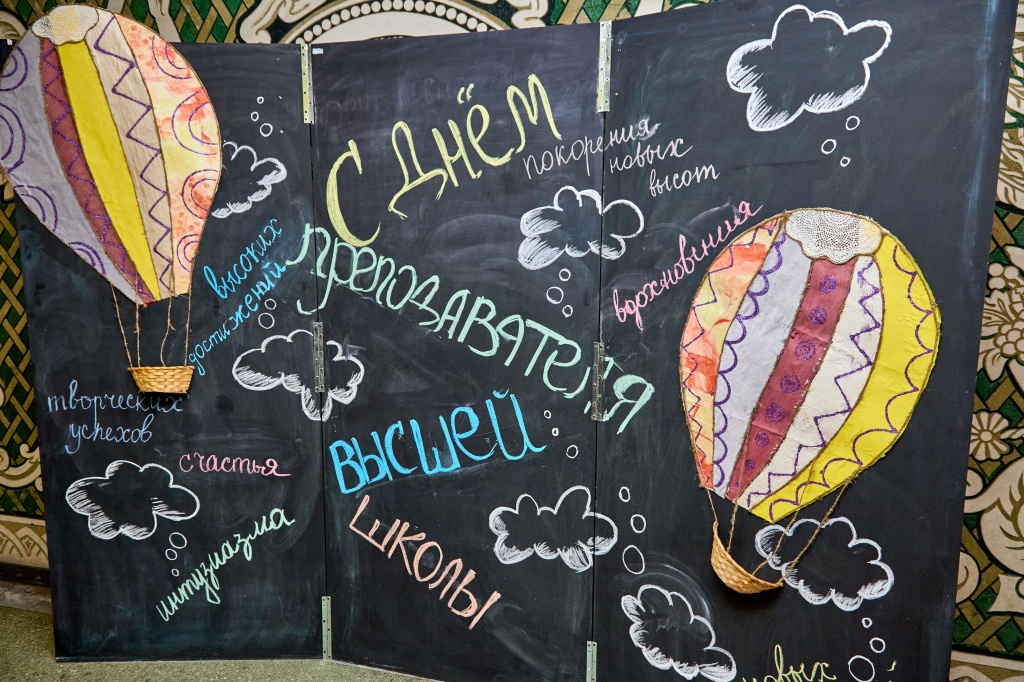 С ДНЁМ
преподАВАТеля
ВЫСШей
ШКОЛЫ
покорения
новых
высот
вдохновиния
высоких
достижений
творческих
успехов
счастья
интузиазма
новых